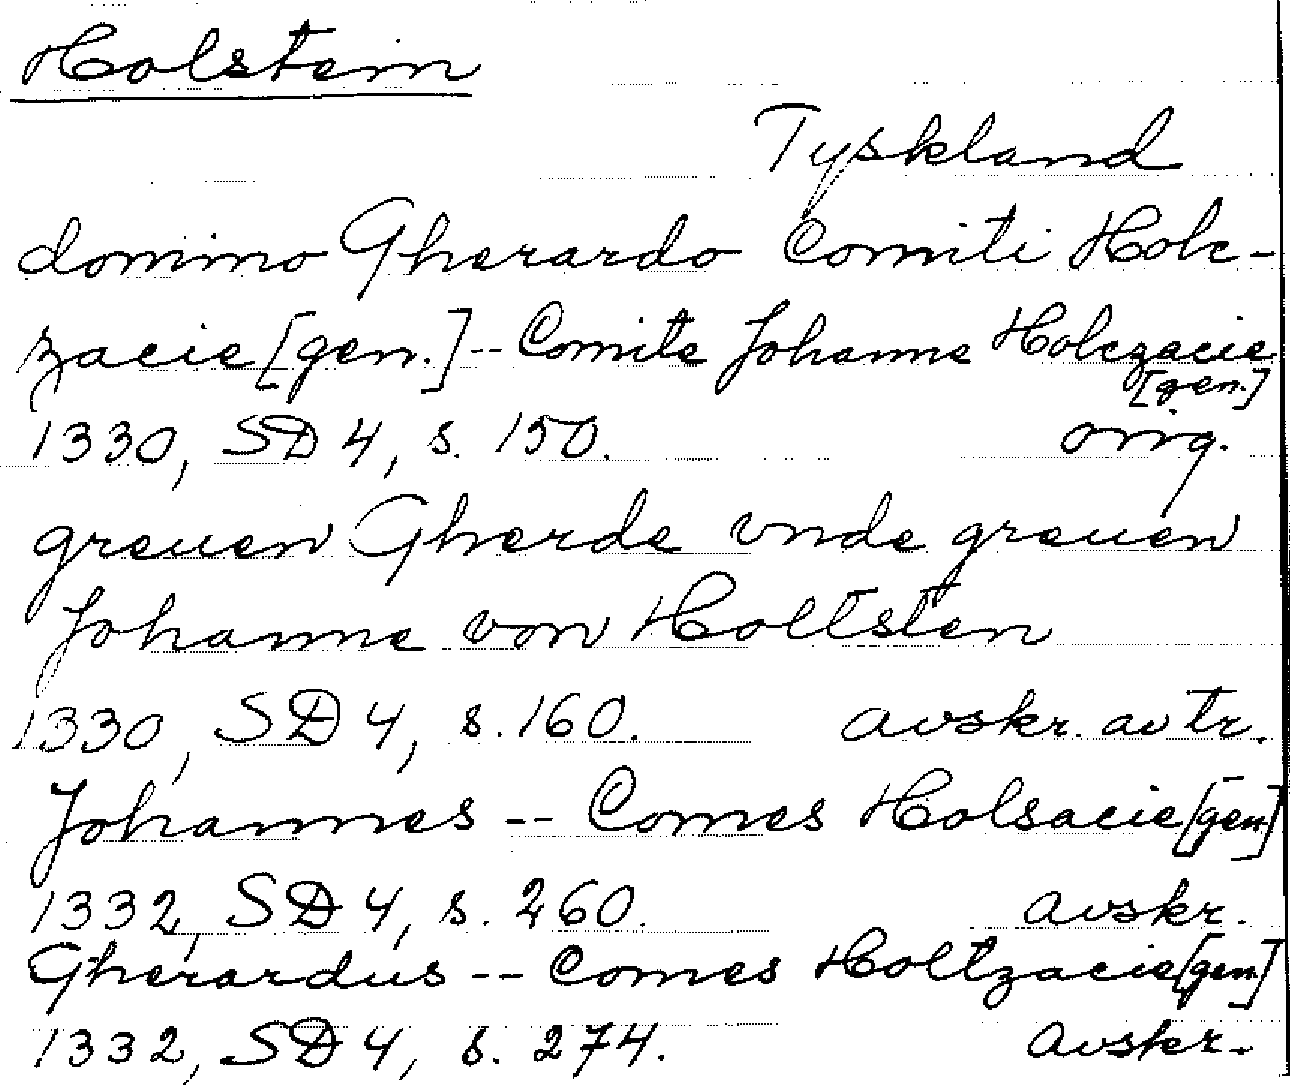 Holstein
Tyskland
domino Gherardo Comiti Holc-
zacie [gen.] -- Comite Johanne Holczacie
[gen.]
1330, SD 4, s. 150. orig.
greuen Gherde vnde greuen
Johanne von Holtsten
1330, SD 4, s. 160. avskr. av tr.
Johannes -- Comes Holsacie [gen]
1332, SD 4, s. 260. avskr.
Gherardus -- Comes Holtzacie [gen]
1332, SD 4, s. 274. avskr.